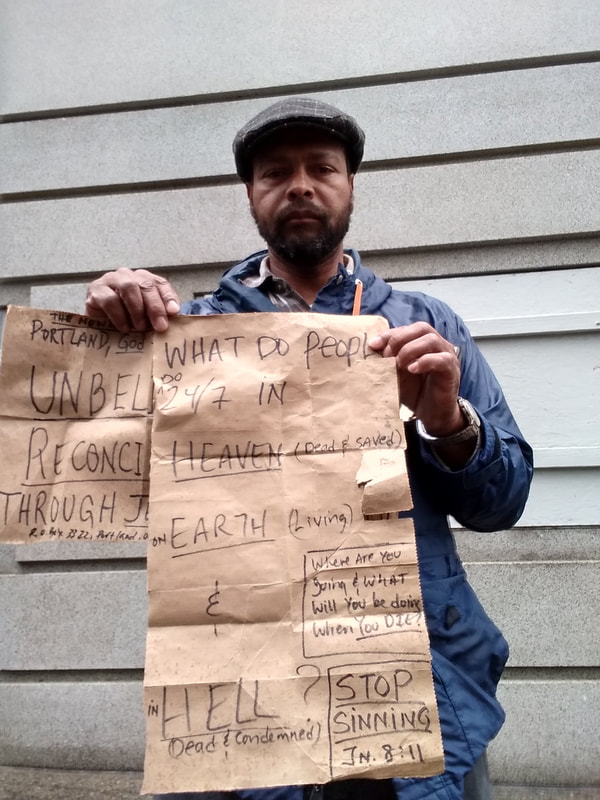 THE NEW
PORTLAND, God
UNBEL
RECONCI
THROUGH J
Portland
WHAT DO PeopL
DO
24/7 IN
HEAVEN (Dead & SAVED)
ON EARTH (Living)
&
in HELL ?
(Dead & Condemned)
Where Are You
going & WHAT
Will You be doing
When You DIE?
STOP
SiNNING
JN. 8:11